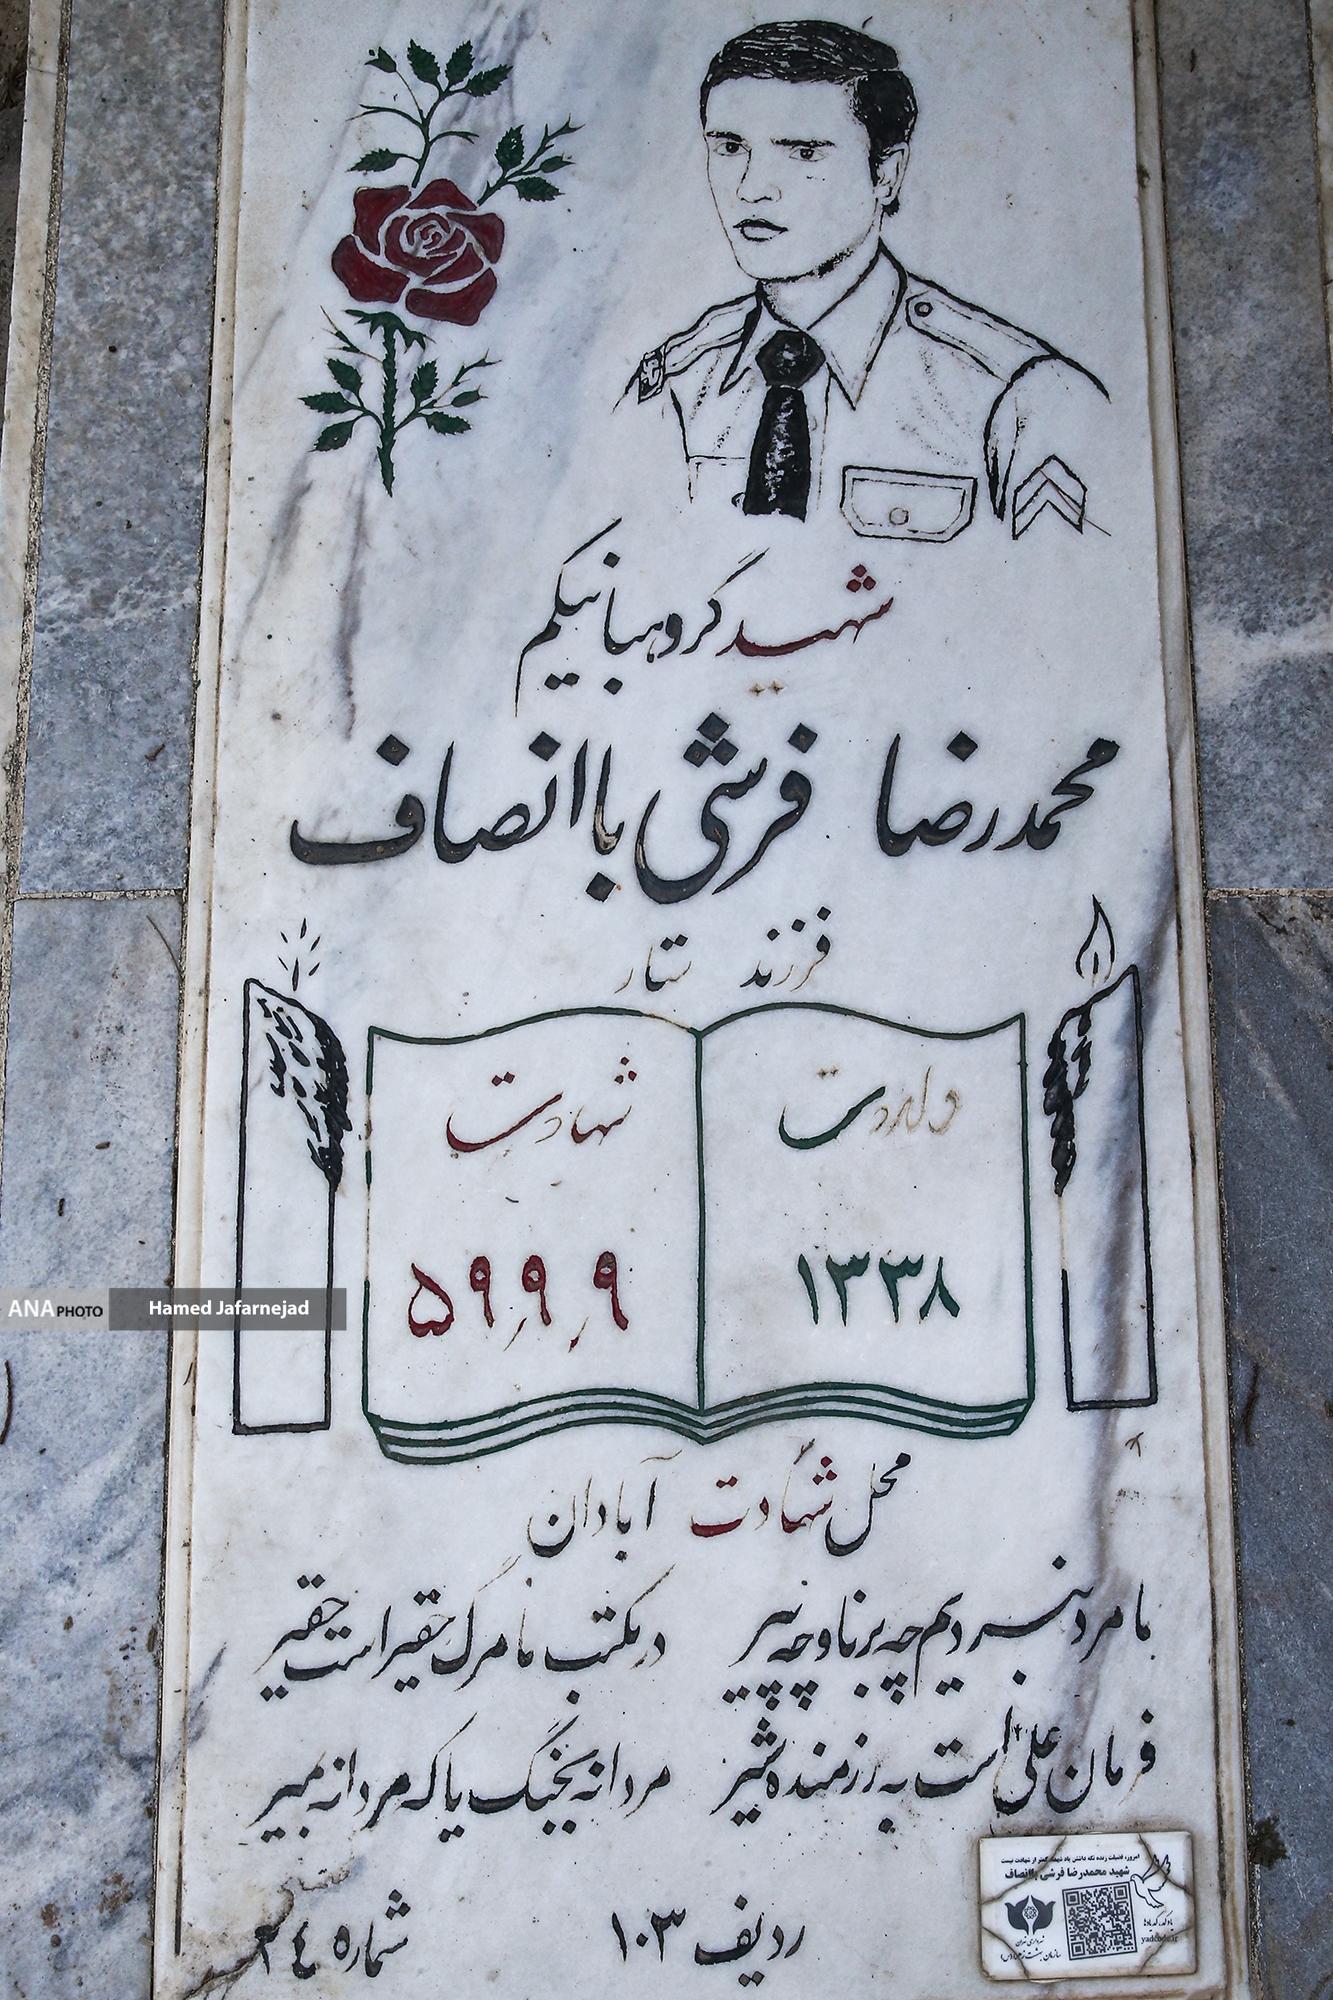 شهید گروهبانیکم
محمدرضا فرشی باانصاف
فرزند ستار
ولادت
۱۳۳۸
شهادت
۵۹٫۹٫۹
محل شهادت آبادان
ما مرد نبردیم چه برنا و چه پیر در مکتب ما مرگ حقیر است حقیر
فرمان علی است به رزمنده شیر مردانه بجنگ یا که مردانه بمیر
ردیف ۱۰۳ شماره ۲۴
امروزه فضیلت زنده نگه داشتن یاد شهدا کمتر از شهادت نیست
شهید محمدرضا فرشی باانصاف
yadcode.ir
ANA PHOTO Hamed Jafarnejad